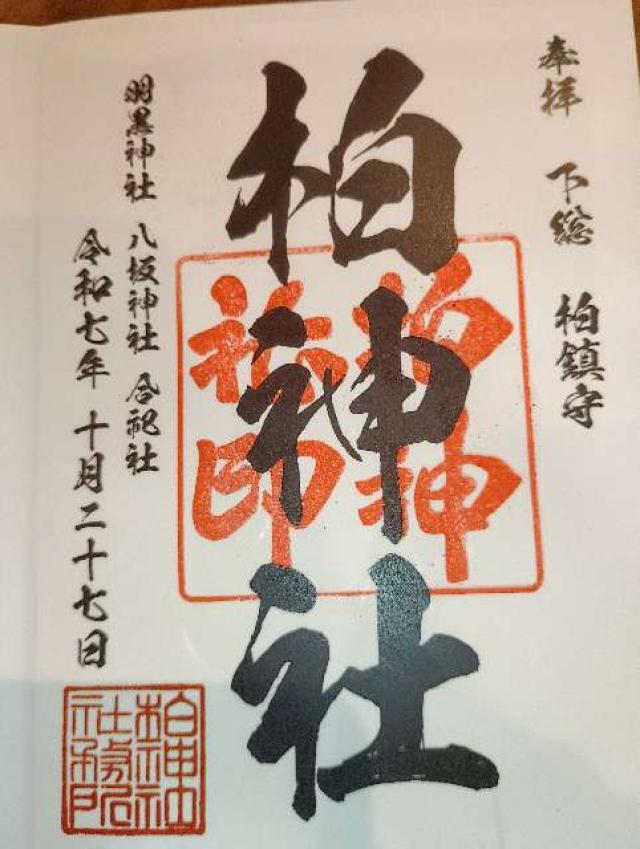 奉拝 下総 柏鎮守
柏神社
柏神
社印
羽黒神社 八坂神社 合祀社
令和七年 十月二十七日
柏神社
社務所